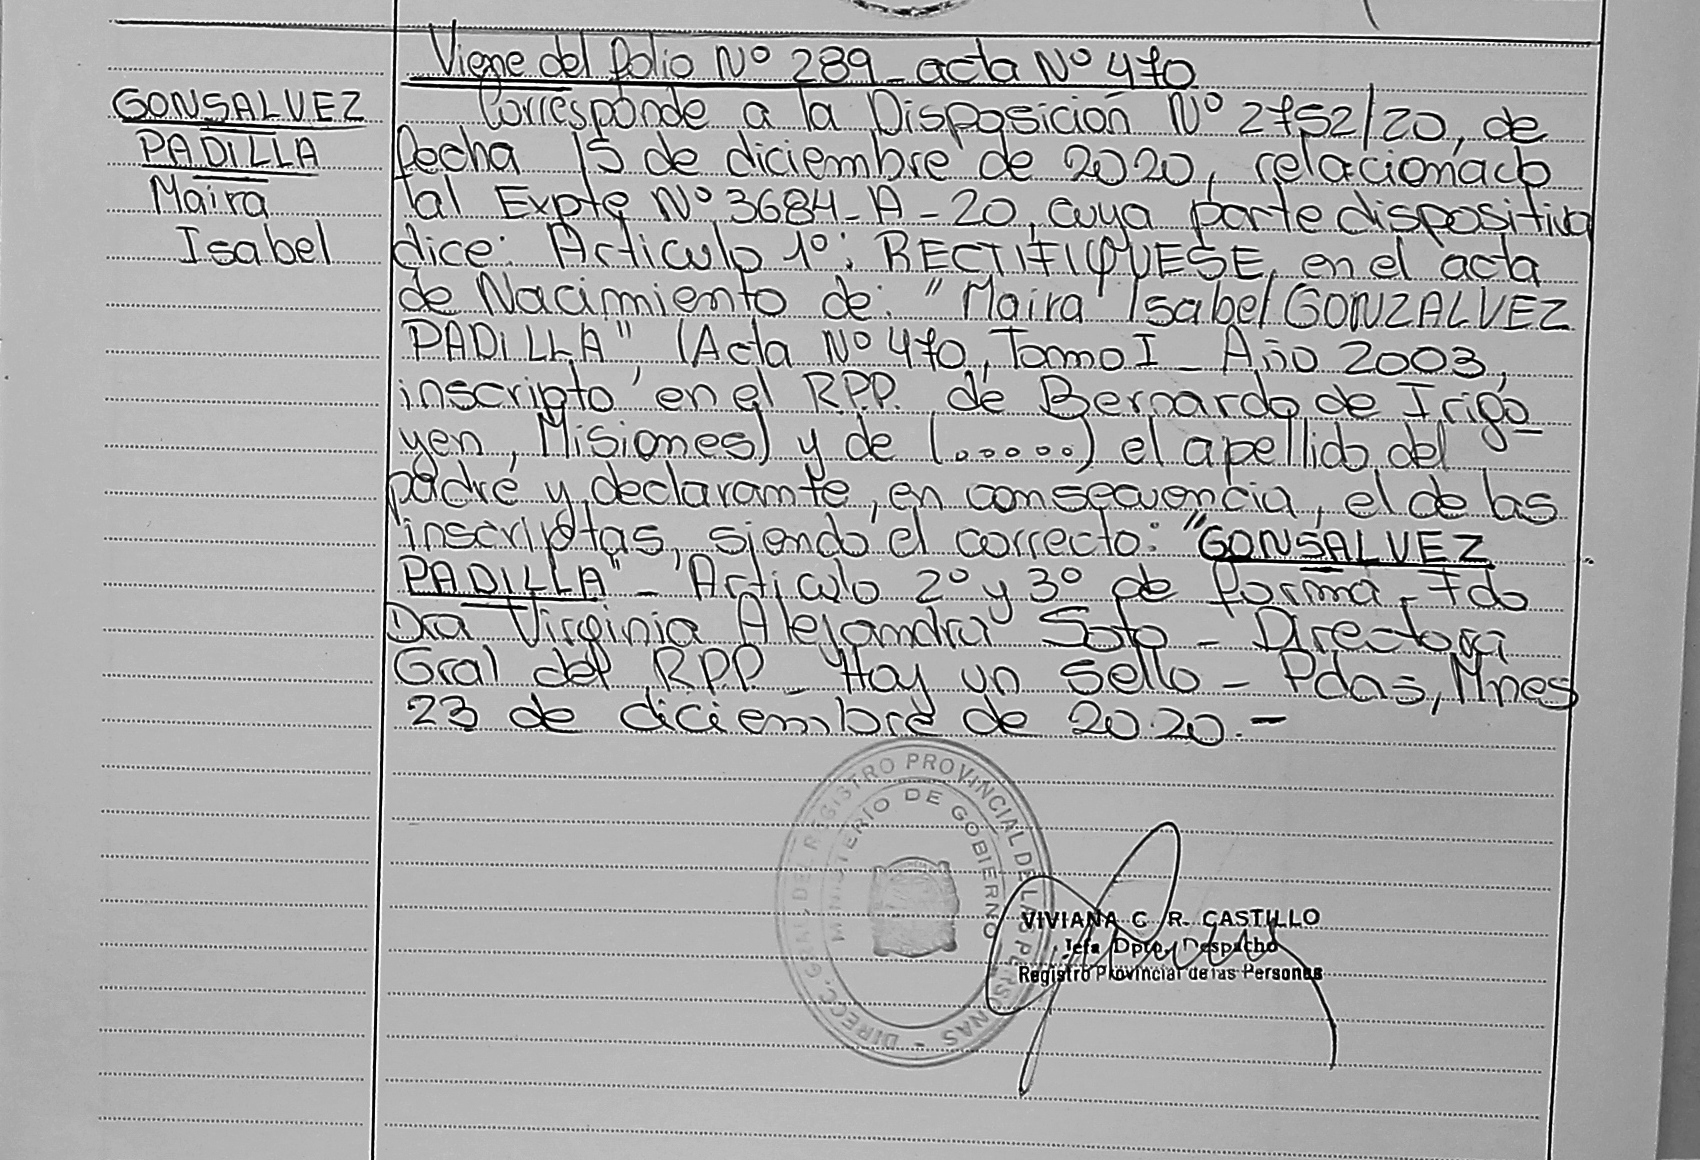 Viene del folio Nº 289 - acta Nº 470
GONSALVEZ
PADILLA
Maira
Isabel
Corresponde a la Disposición Nº 2752/20, de
fecha 15 de diciembre de 2020, relacionado
al Expte Nº 3684-A-20, cuya parte dispositiva
dice: Artículo 1º: RECTIFIQUESE, en el acta
de Nacimiento de: "Maira Isabel GONZALVEZ
PADILLA" (Acta Nº 470, Tomo I - Año 2003,
inscripto en el R.P.P. de Bernardo de Irigo
yen, Misiones) y de (......) el apellido del
padre y declarante, en consecuencia, el de las
inscriptas, siendo el correcto: "GONSALVEZ
PADILLA" - Artículo 2º y 3º de forma - Fdo
Dra Virginia Alejandra Soto - Directora
Gral del RPP - Hay un sello - Pdas, Mnes
23 de diciembre de 2020.-
DIRECC. GRAL. DEL REGISTRO PROVINCIAL DE LAS PERSONAS -
MINISTERIO DE GOBIERNO
VIVIANA C. R. CASTILLO
Jefa Dpto. Despacho
Registro Provincial de las Personas